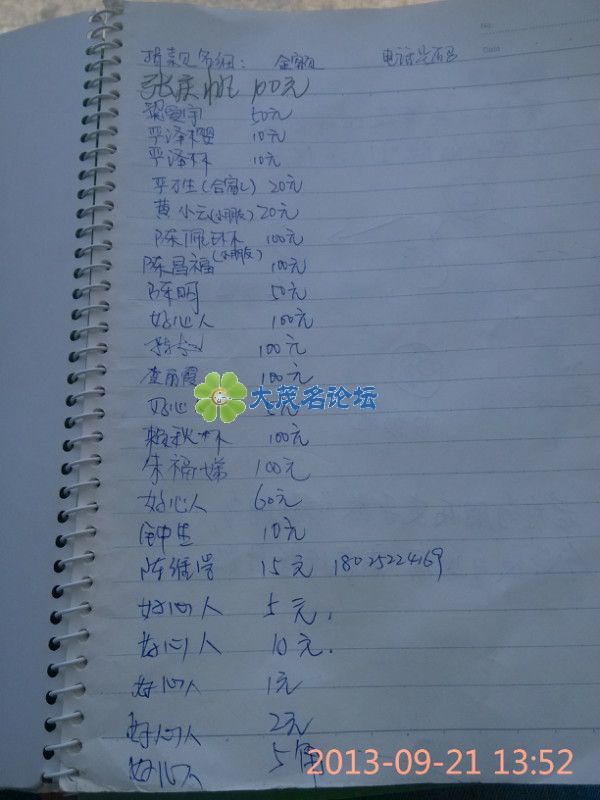 No:
Date
捐款名细: 金额 电话号码
张庆帆 100元
50元
严泽樱 10元
严泽林 10元
严才生 20元
黄小云(小朋友) 20元
陈佩环 100元
陈昌福(小朋友) 100元
陈明 50元
好心人 100元
100元
李丽霞 100元
好心
大茂名论坛
赖秋林 100元
朱福娣 100元
好心人 60元
10元
陈维 15元 18025224169
好心人 5元.
好心人 10元.
好心人 1元
好心人 2元
好心人 5角
2013-09-21 13:52